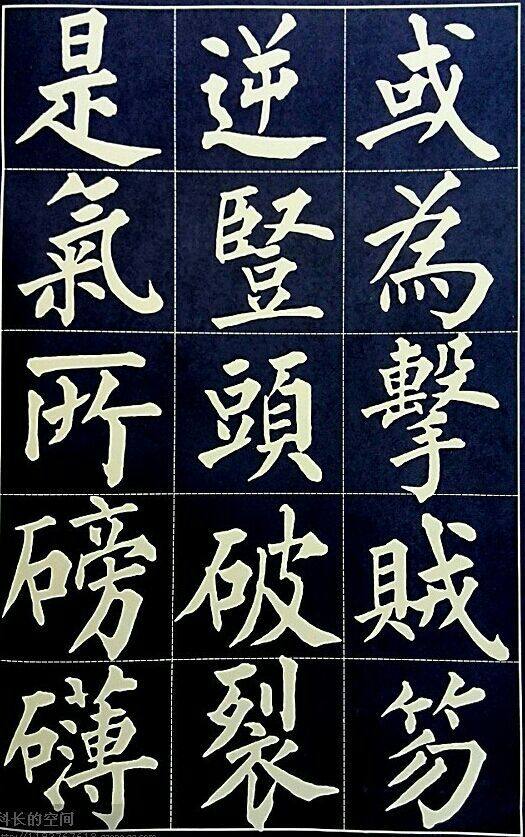 或為擊賊笏
逆豎頭破裂
是氣所磅礡
科长的空间